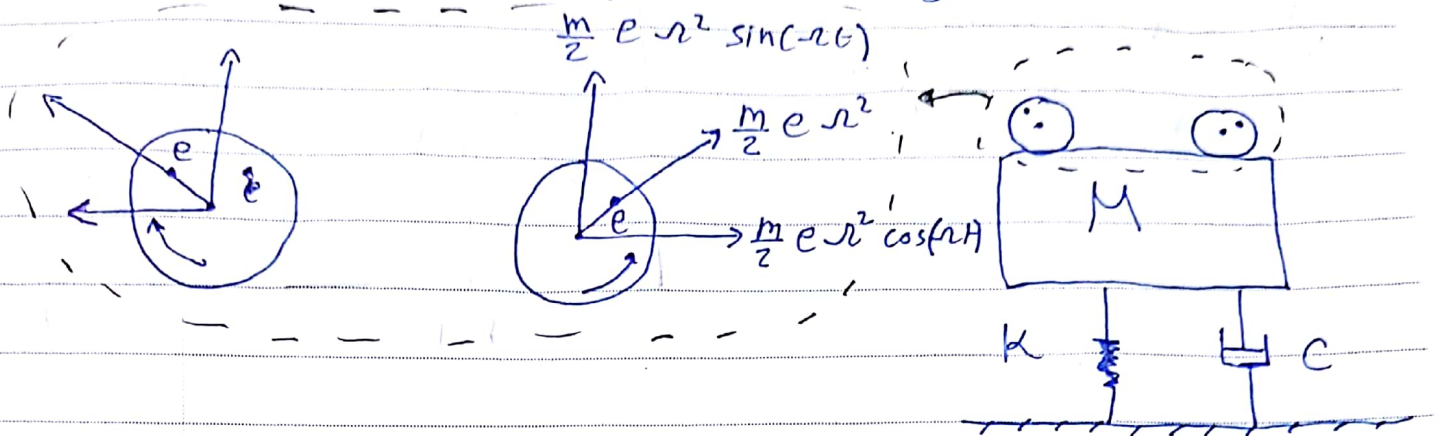 m/2 e Ω² sin(Ωt)
e
m/2 e Ω²
e
m/2 e Ω² cos(Ωt)
M
K
C